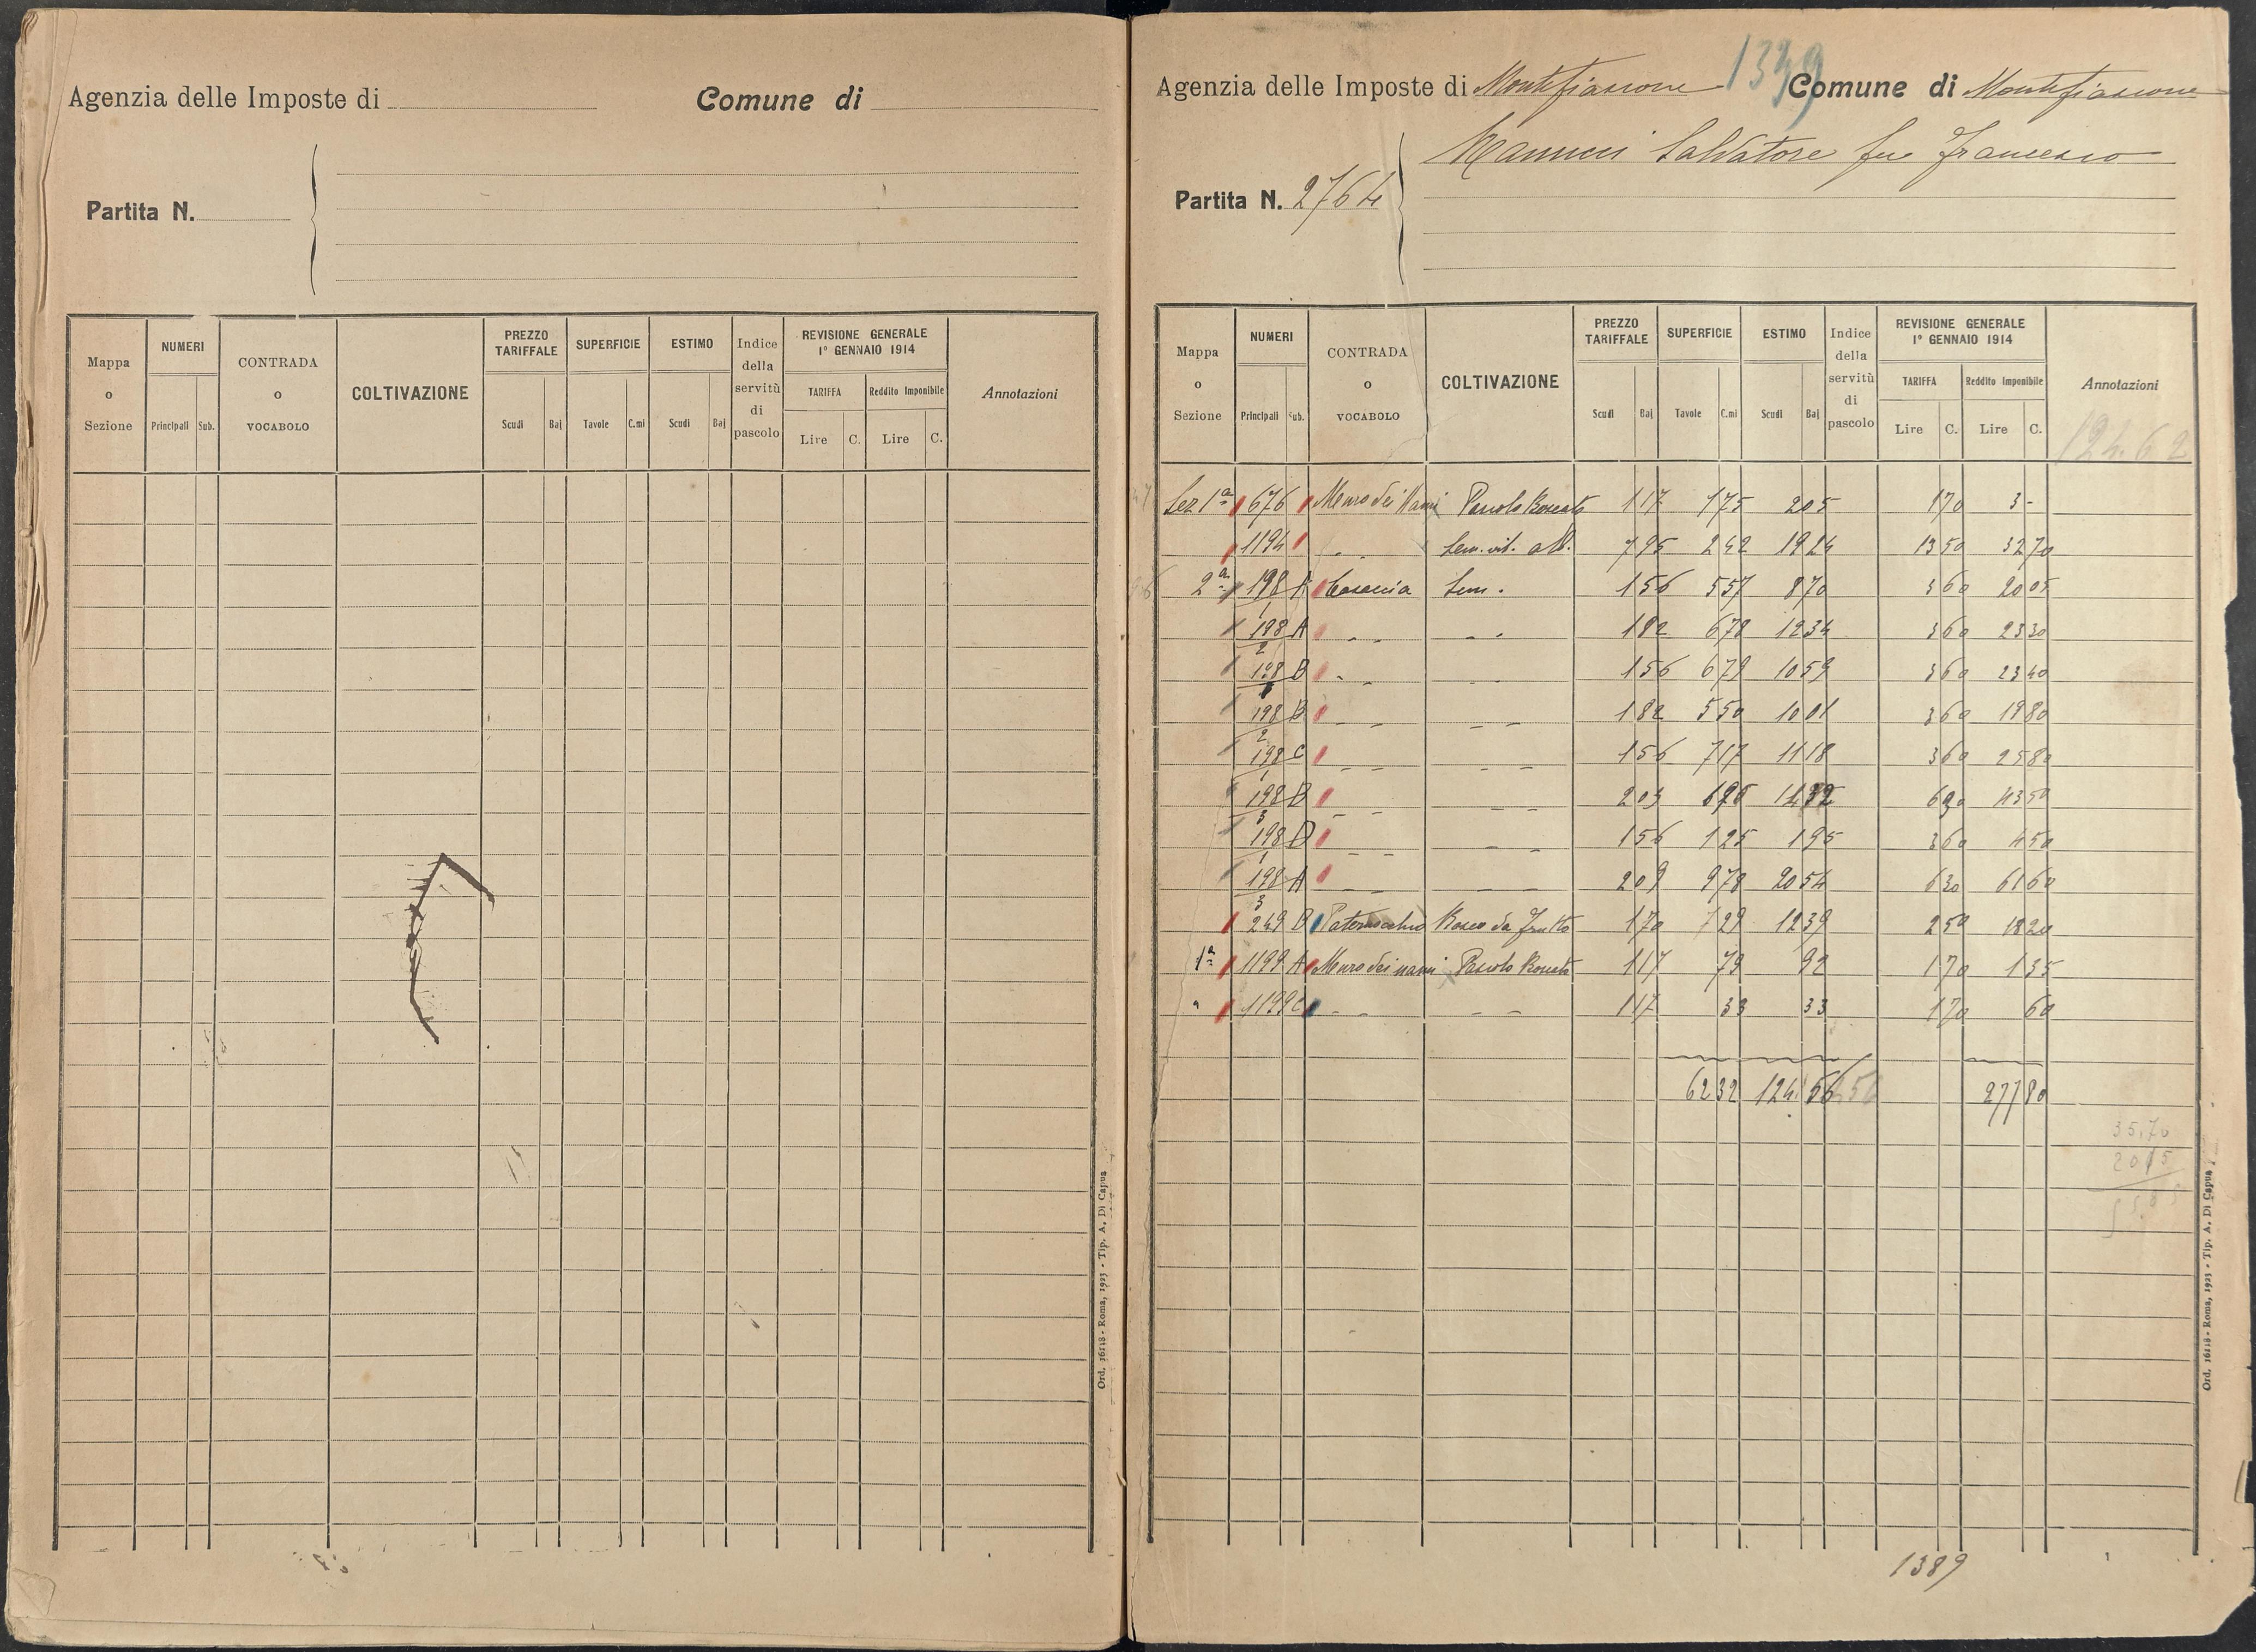 Agenzia delle Imposte di Comune di
Partita N.
Mappa o Sezione NUMERI Principali Sub. CONTRADA o VOCABOLO COLTIVAZIONE PREZZO TARIFFALE Scudi Baj SUPERFICIE Tavole C.mi ESTIMO Scudi Baj Indice della servitù di pascolo REVISIONE GENERALE 1° GENNAIO 1914 TARIFFA Lire C. Reddito Imponibile Lire C. Annotazioni
Ord. 16118 - Roma, 1923 - Tip. A. Di Capua
Agenzia delle Imposte di Montefiascone Comune di Montefiascone
Salvatore fu Francesco
Partita N. 2764
Mappa o Sezione NUMERI Principali Sub. CONTRADA o VOCABOLO COLTIVAZIONE PREZZO TARIFFALE Scudi Baj SUPERFICIE Tavole C.mi ESTIMO Scudi Baj Indice della servitù di pascolo REVISIONE GENERALE 1° GENNAIO 1914 TARIFFA Lire C. Reddito Imponibile Lire C. Annotazioni
124.62
Sez 1ª 676 Pascolo Boscato 117 175 205 170 3-
1194 Sem. vit. alb. 795 242 1924 1350 3270
2ª 198/1 A Sem. 156 557 870 360 2005
198/2 A 182 678 1234 360 2330
198 B 156 679 1059 360 2340
198/2 B 182 550 1001 360 1980
198/1 C 156 717 1118 360 2580
198/3 B 209 630 4350
198/1 D 156 125 195 360 450
198/3 A 209 978 2054 630 6160
249 B Bosco da frutto 170 729 1239 250 1820
1ª 1199 A Pascolo Boscato 117 79 92 170 135
" 1199 C 117 33 33 170 60
6232 124 56 277 80
35,70
2015
1389
Ord. 16118 - Roma, 1923 - Tip. A. Di Capua